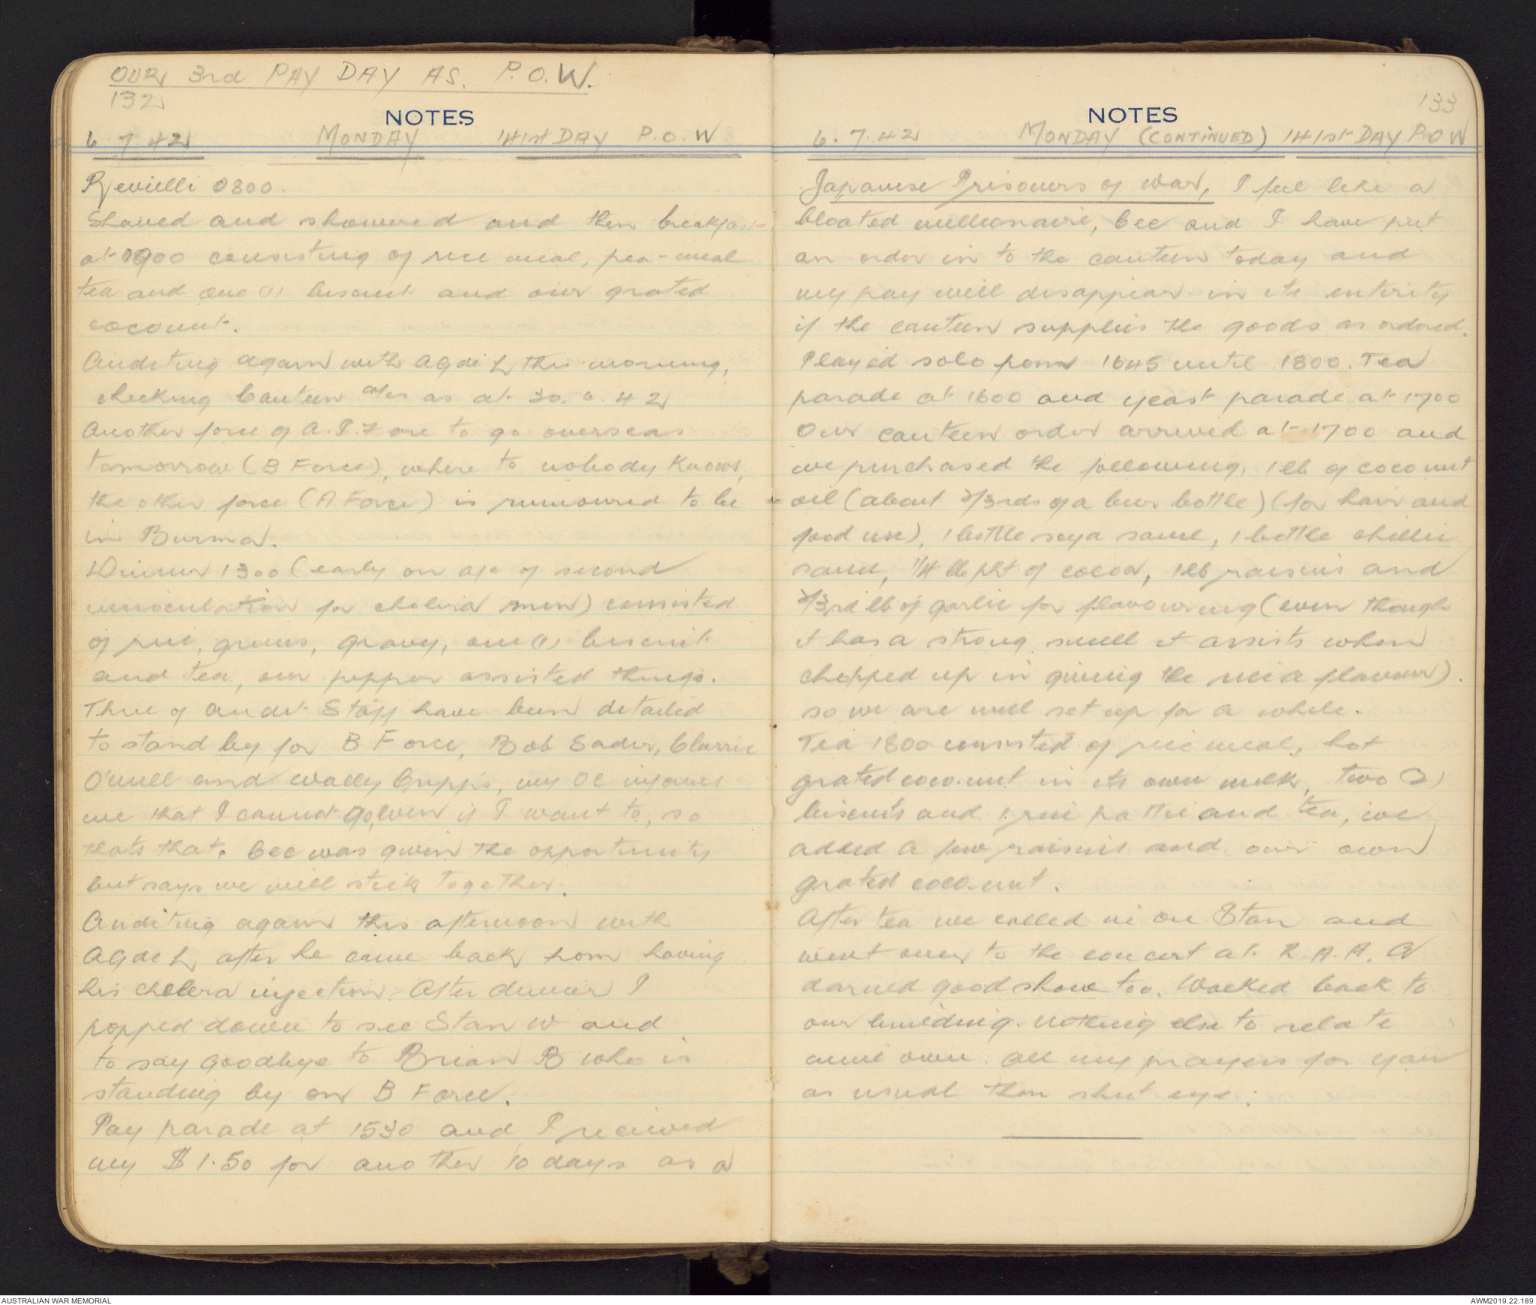 OUR 3rd PAY DAY AS. P.O.W.
132
NOTES
6 7 42 MONDAY 141st DAY P.O.W
Revielli 0800.
Shaved and showered and then breakfast
at 0900 consisting of rice meal, pea-meal
tea and one (1) biscuit and our grated
cocounut.
Auditing again with AQdeH, this morning,
checking Canteen a/cs as at 30. 6. 42
Another force of A.I.F are to go overseas
tomorrow (B Force), where to nobody knows,
the other force (A Force) is rumoured to be
in Burma.
Dinner 1300 (early on a/c of second
innoculation for cholera men) consisted
of rice, greens, gravy, one (1) biscuit
and tea, our pepper assisted things.
Three of Audit Staff have been detailed
to stand by for B Force, Bob Sader, Clarrie
O'neill and Wally Cripps, my OC informs
me that I cannot go, even if I want to, so
thats that. Cec was given the opportunity
but says we will stick together.
Auditing again this afternoon with
AQdeH, after he came back from having
his cholera injection. After dinner I
popped down to see Stan W and
to say goodbye to Brian B who is
standing by on B Force.
Pay parade at 1530 and I received
my $1.50 for another 10 days as a
133
NOTES
6. 7. 42 MONDAY (CONTINUED) 141st DAY P.O.W
Japanese Prisoners of war, I feel like a
bloated millionaire, Cec and I have put
an order in to the canteen today and
my pay will disappear in its entirity
if the canteen supplies the goods as ordered.
Played solo from 1645 until 1800. Tea
parade at 1600 and yeast parade at 1700
Our canteen order arrived at 1700 and
we purchased the following, 1 lb of cocounut
oil (about 2/3rds of a beer bottle) (for hair and
food use), 1 bottle soya sauce, 1 bottle chillie
sauce, 1/4 lb pkt of cocoa, 1lb raisins and
2/3rd lb of garlic for flavouring (even though
it has a strong smell it assists when
chopped up in giving the rice a flavour).
so we are well set up for a while.
Tea 1800 consisted of rice meal, hot
grated cocounut in its own milk, two (2)
biscuits and 1 rice pattie and tea, we
added a few raisins and our own
grated cocounut.
After tea we called in on Stan and
went over to the concert at R.A.A. A
darned good show too. Walked back to
our building. Nothing else to relate
mine own. All my prayers for you
as usual then shut eye.
AUSTRALIAN WAR MEMORIAL
AWM2019.22.189